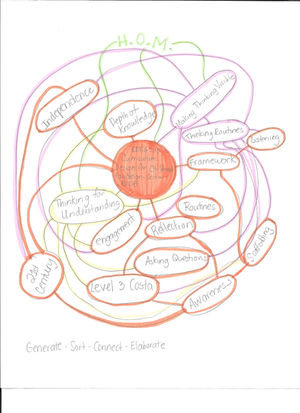 H.O.M.
Independence
Depth of
Knowledge
Making Thinking Visible
Thinking Routines
Framework
Curriculum
Thinking for
Understanding
Engagement
Routines
Reflection
Asking Questions
Level 3 Costa
21st
Century
Awareness
Scaffolding
Generate - Sort - Connect - Elaborate